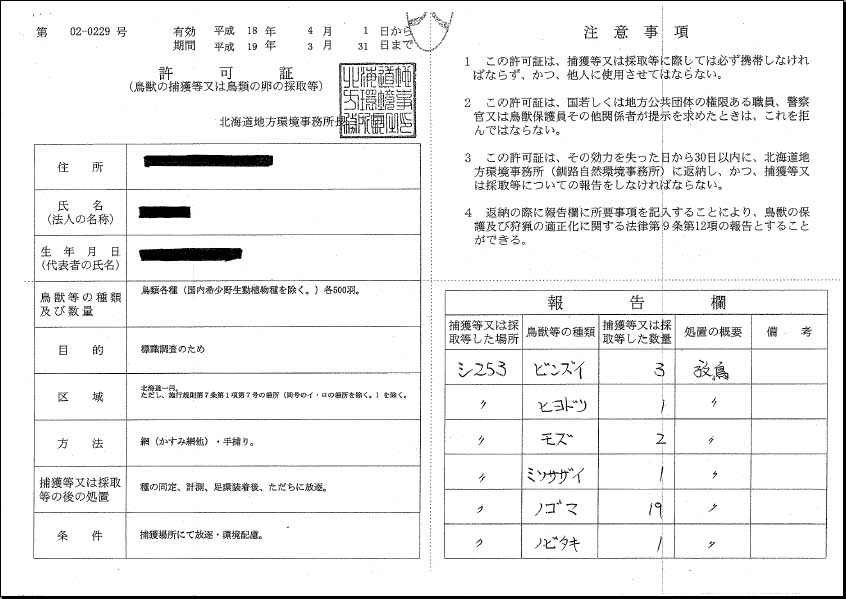 第 02-0229 号
有効 平成 18 年 4 月 1 日から
期間 平成 19 年 3 月 31 日まで
許可証
(鳥獣の捕獲等又は鳥類の卵の採取等)
北海道地方環境事務所長
住所
氏名
(法人の名称)
生年月日
(代表者の氏名)
鳥獣等の種類
及び数量
鳥類各種(国内希少野生動植物種を除く。)各500羽。
目的
標識調査のため
区域
北海道一円。
ただし、施行規則第7条第1項第7号の場所(同号のイ・ロの場所を除く。)を除く。
方法
網(かすみ網他)・手捕り。
捕獲等又は採取
等の後の処置
種の同定、計測、足環装着後、ただちに放逐。
条件
捕獲場所にて放逐・環境配慮。
注意事項
1 この許可証は、捕獲等又は採取等に際しては必ず携帯しなけれ
ばならず、かつ、他人に使用させてはならない。
2 この許可証は、国若しくは地方公共団体の権限ある職員、警察
官又は鳥獣保護員その他関係者が提示を求めたときは、これを拒
んではならない。
3 この許可証は、その効力を失った日から30日以内に、北海道地
方環境事務所(釧路自然環境事務所)に返納し、かつ、捕獲等又
は採取等についての報告をしなければならない。
4 返納の際に報告欄に所要事項を記入することにより、鳥獣の保
護及び狩猟の適正化に関する法律第9条第12項の報告とすること
ができる。
報告欄
捕獲等又は採取等した場所 鳥獣等の種類 捕獲等又は採取等した数量 処置の概要 備考
シ253 ビンズイ 3 放鳥
〃 ヒヨドリ 1 〃
〃 モズ 2 〃
〃 ミソサザイ 1 〃
〃 ノゴマ 19 〃
〃 ノビタキ 1 〃